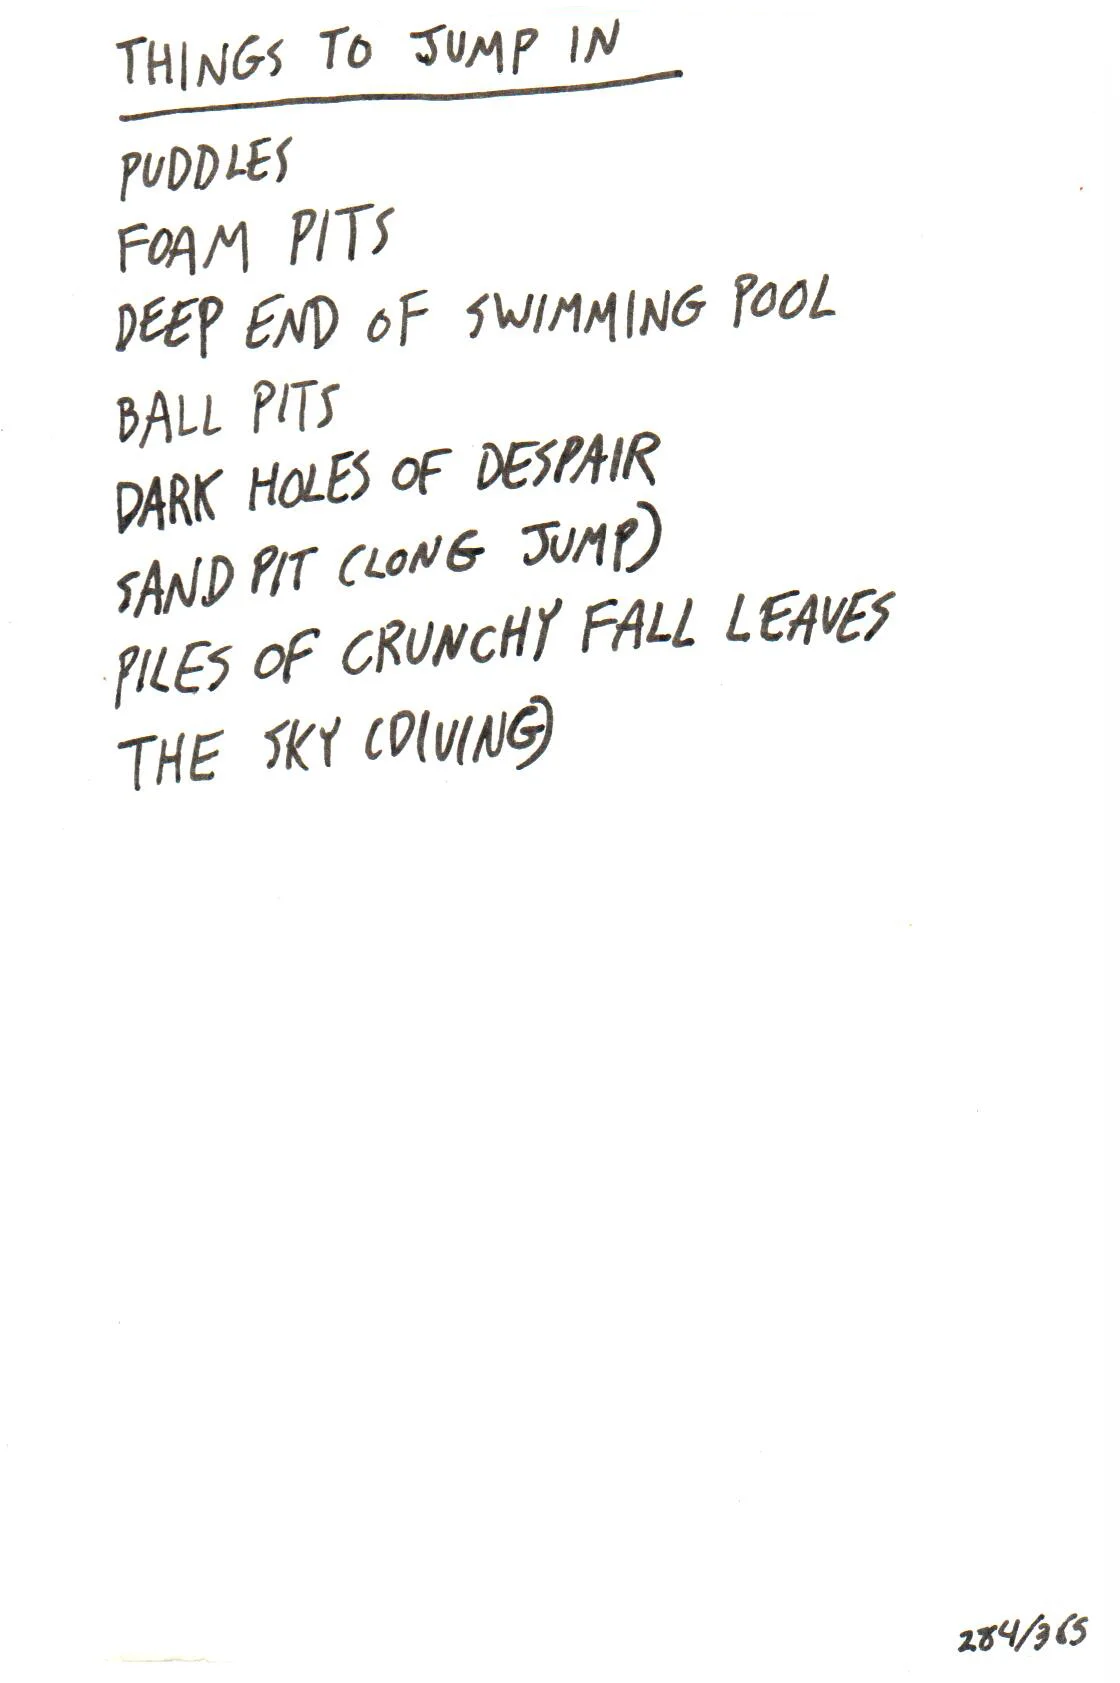 THINGS TO JUMP IN
PUDDLES
FOAM PITS
DEEP END OF SWIMMING POOL
BALL PITS
DARK HOLES OF DESPAIR
SAND PIT (LONG JUMP)
PILES OF CRUNCHY FALL LEAVES
THE SKY (DIVING)
284/365